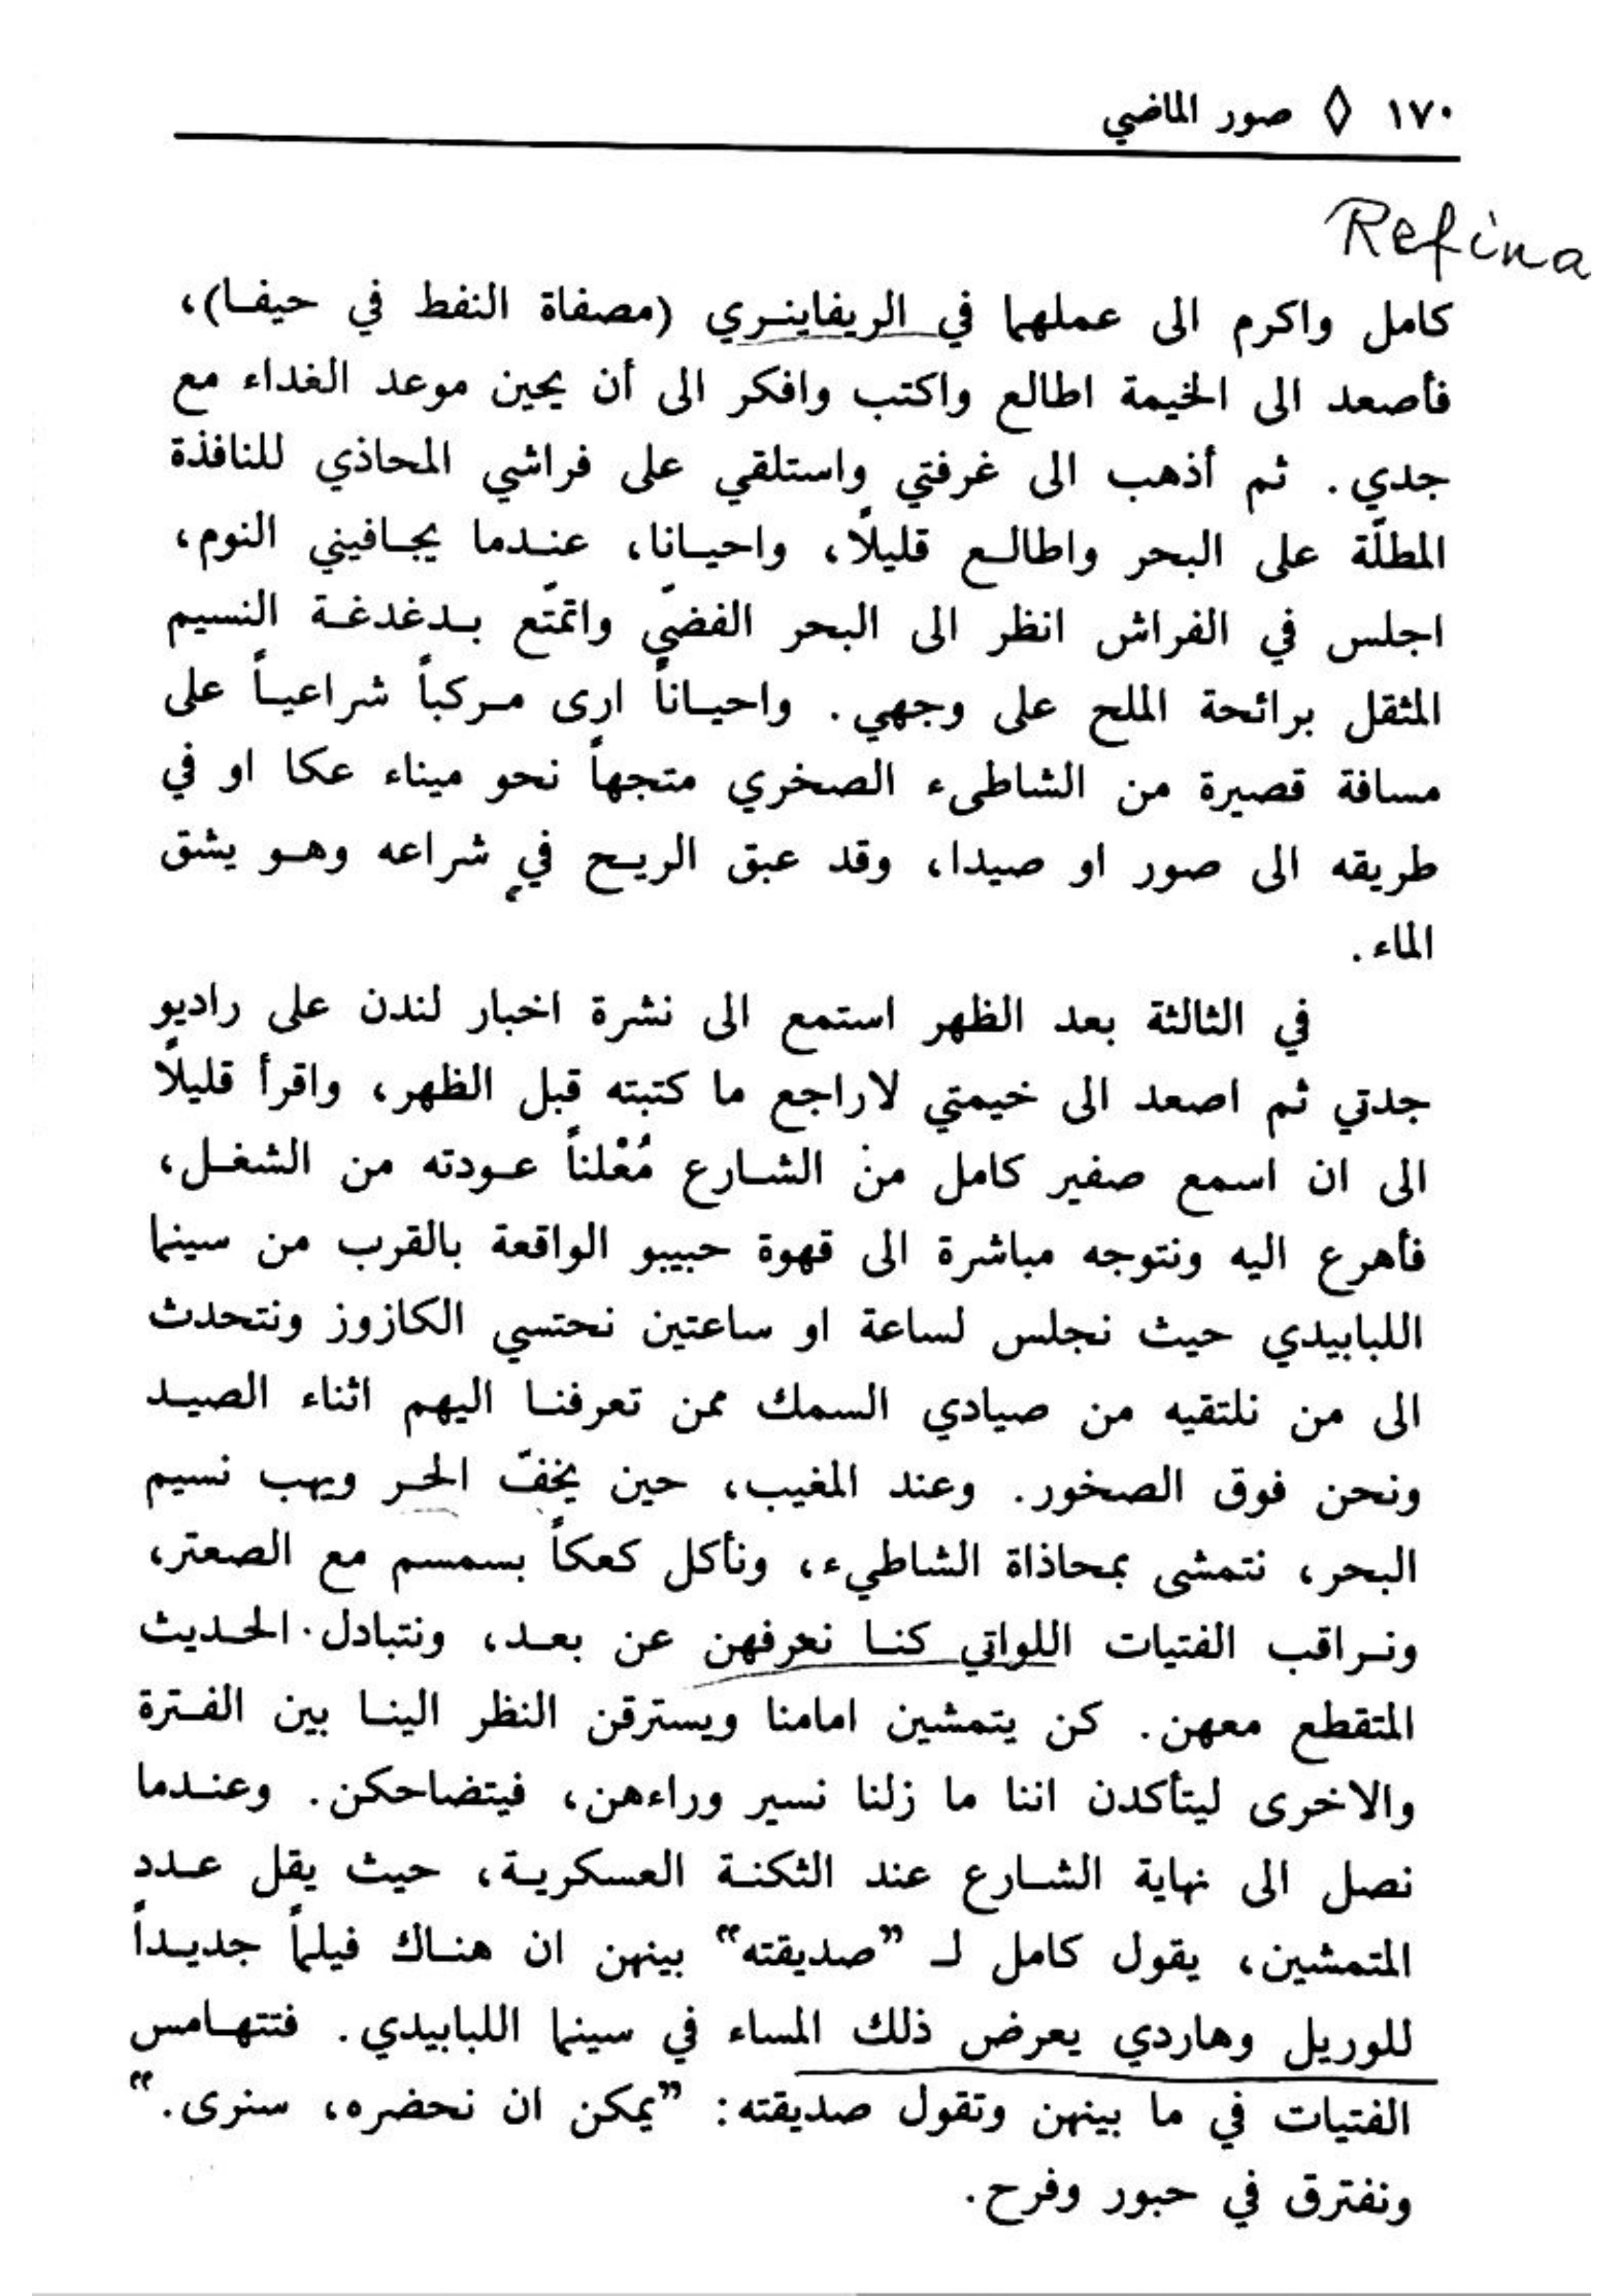 ١٧٠ ◊ صور الماضي
Refina
كامل واكرم الى عملهما في الريفاينري (مصفاة النفط في حيفا)،
فأصعد الى الخيمة اطالع واكتب وافكر الى أن يحين موعد الغداء مع
جدي. ثم أذهب الى غرفتي واستلقي على فراشي المحاذي للنافذة
المطلّة على البحر واطالع قليلاً، واحيانا، عندما يجافيني النوم،
اجلس في الفراش انظر الى البحر الفضّي واتمتّع بدغدغة النسيم
المثقل برائحة الملح على وجهي. واحياناً ارى مركباً شراعياً على
مسافة قصيرة من الشاطىء الصخري متجهاً نحو ميناء عكا او في
طريقه الى صور او صيدا، وقد عبق الريح في شراعه وهو يشق
الماء.
في الثالثة بعد الظهر استمع الى نشرة اخبار لندن على راديو
جدتي ثم اصعد الى خيمتي لاراجع ما كتبته قبل الظهر، واقرأ قليلاً
الى ان اسمع صفير كامل من الشارع مُعْلناً عودته من الشغل،
فأهرع اليه ونتوجه مباشرة الى قهوة حبيبو الواقعة بالقرب من سينما
اللبابيدي حيث نجلس لساعة او ساعتين نحتسي الكازوز ونتحدث
الى من نلتقيه من صيادي السمك ممن تعرفنا اليهم اثناء الصيد
ونحن فوق الصخور. وعند المغيب، حين يخفّ الحر ويهب نسيم
البحر، نتمشى بمحاذاة الشاطيء، ونأكل كعكاً بسمسم مع الصعتر،
ونراقب الفتيات اللواتي كنا نعرفهن عن بعد، ونتبادل الحديث
المتقطع معهن. كن يتمشين امامنا ويسترقن النظر الينا بين الفترة
والاخرى ليتأكدن اننا ما زلنا نسير وراءهن، فيتضاحكن. وعندما
نصل الى نهاية الشارع عند الثكنة العسكرية، حيث يقل عدد
المتمشين، يقول كامل لـ ”صديقته“ بينهن ان هناك فيلماً جديداً
للوريل وهاردي يعرض ذلك المساء في سينما اللبابيدي. فتتهامس
الفتيات في ما بينهن وتقول صديقته: ”يمكن ان نحضره، سنرى.“
ونفترق في حبور وفرح.